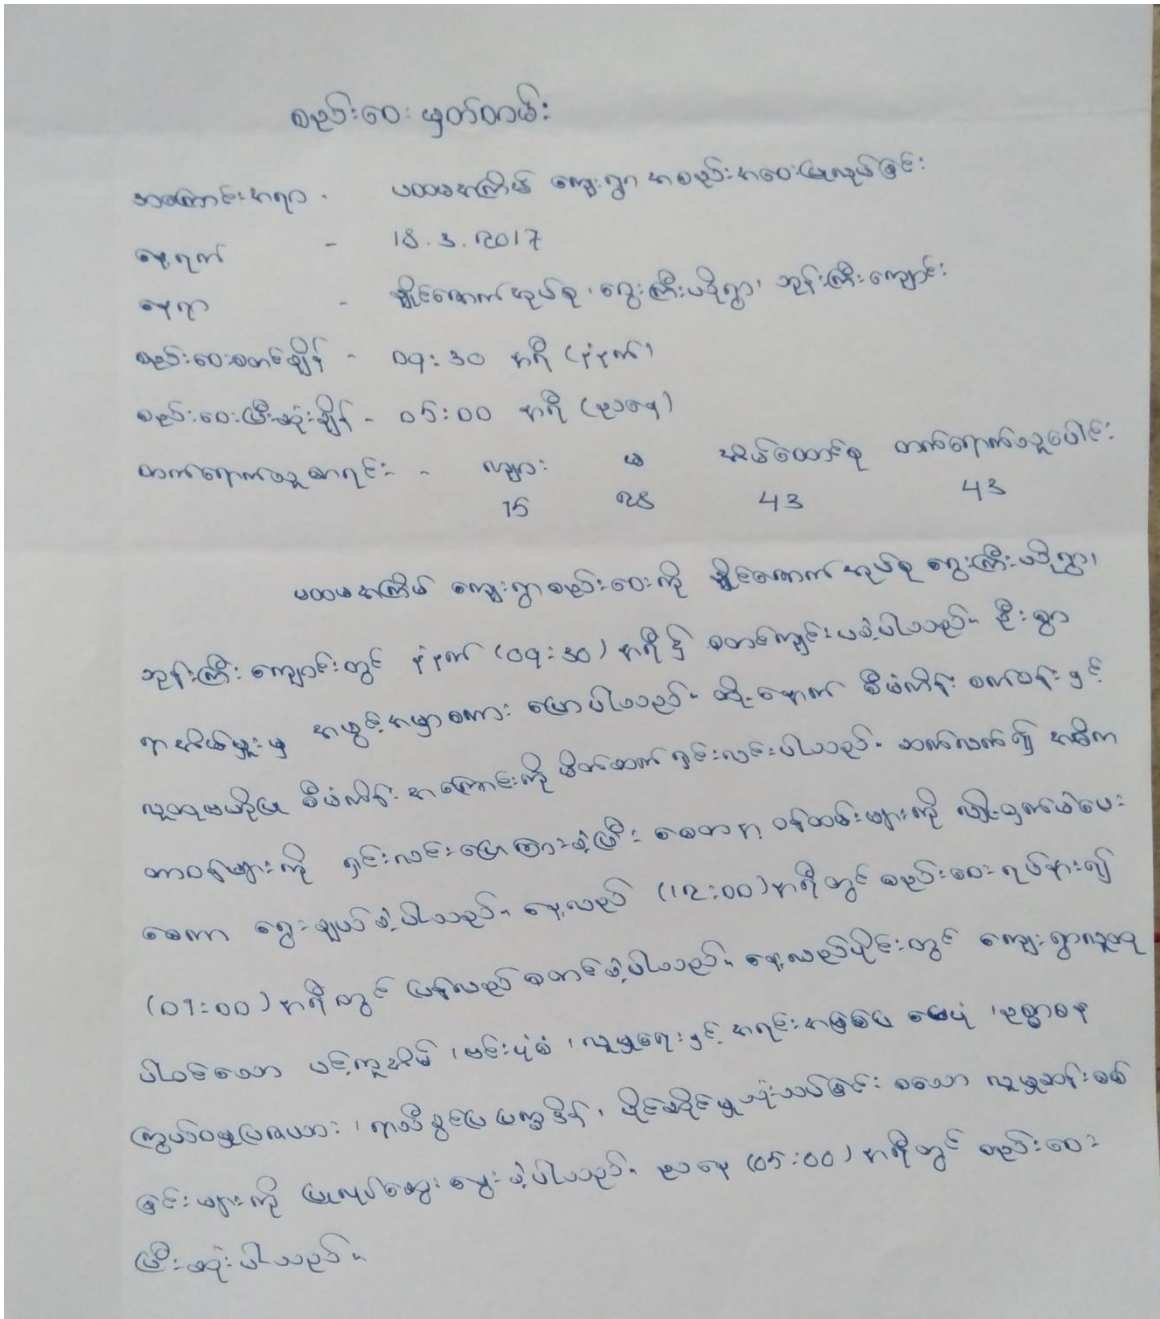 စည်းဝေး မှတ်တမ်း
အကြောင်းအရာ - ပထမအကြိမ် ကျေးရွာ အစည်းအဝေးပြုလုပ်ခြင်း
နေ့ရက် - 18.3.2017
နေရာ - အုပ်စု၊ ရွာ၊ ဘုန်းကြီးကျောင်း
စည်းဝေးစတင်ချိန် - 09:30 နာရီ (နံနက်)
စည်းဝေးပြီးဆုံးချိန် - 05:00 နာရီ (ညနေ)
တက်ရောက်သူစာရင်း - ကျား မ အိမ်ထောင်စု တက်ရောက်သူပေါင်း
15 28 43 43
ပထမအကြိမ် ကျေးရွာစည်းဝေးကို အုပ်စု ရွာ၊
ဘုန်းကြီးကျောင်းတွင် နံနက် (09:30) နာရီ၌ စတင်ကျင်းပခဲ့ပါသည်။ ဦးစွာ
အဖွင့်အမှာစကား ပြောပါသည်။ ထို့နောက် စီမံကိန်း စက်ဝန်းနှင့်
လူထုဗဟိုပြု စီမံကိန်း အကြောင်းကို မိတ်ဆက် ရှင်းလင်းပါသည်။ ဆက်လက်၍ အဓိက
တာဝန်များကို ရှင်းလင်းပြောကြားခဲ့ပြီး စေတနာ့ ဝန်ထမ်းများကို လျှို့ဝှက်မဲပေး
စေကာ ရွေးချယ်ခဲ့ပါသည်။ နေ့လည် (12:00) နာရီတွင် စည်းဝေး ရပ်နား၍
(01:00) နာရီတွင် ပြန်လည်စတင်ခဲ့ပါသည်။ နေ့လည်ပိုင်းတွင် ကျေးရွာလူထု
ပါဝင်သော ပင့်ကူအိမ် ၊ လူမှုရေးနှင့် အရင်းအမြစ်ပြ မြေပုံ ၊
ကြွယ်ဝမှု ၊ ရာသီခွင်ပြ ပြက္ခဒိန်၊ ပိုင်ဆိုင်မှု သုံးသပ်ခြင်း စသော လူမှုဆန်းစစ်
ခြင်းများကို ပြုလုပ်ဆွေးနွေးခဲ့ပါသည်။ ညနေ (05:00) နာရီတွင် စည်းဝေး
ပြီးဆုံးပါသည်။